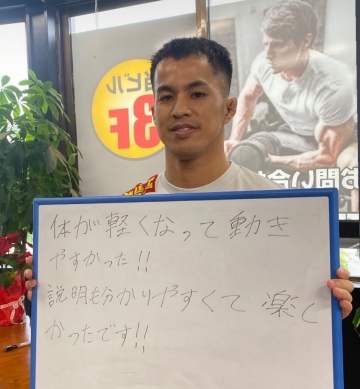 当ビル
3F
お問い合わ
体が軽くなって動き
やすかった!!
説明も分かりやすくて 楽し
かったです!!